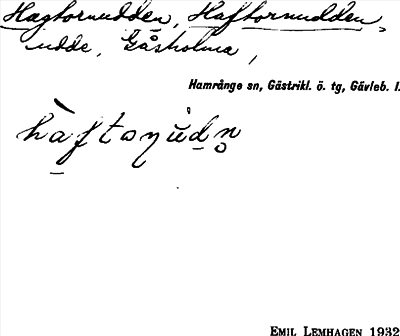 Hagtornudden, Haftornudden,
udde, Gåsholma,
Hamrånge sn, Gästrikl. ö. tg, Gävleb. l.
hàftoṇùdn̥
EMIL LEMHAGEN 1932